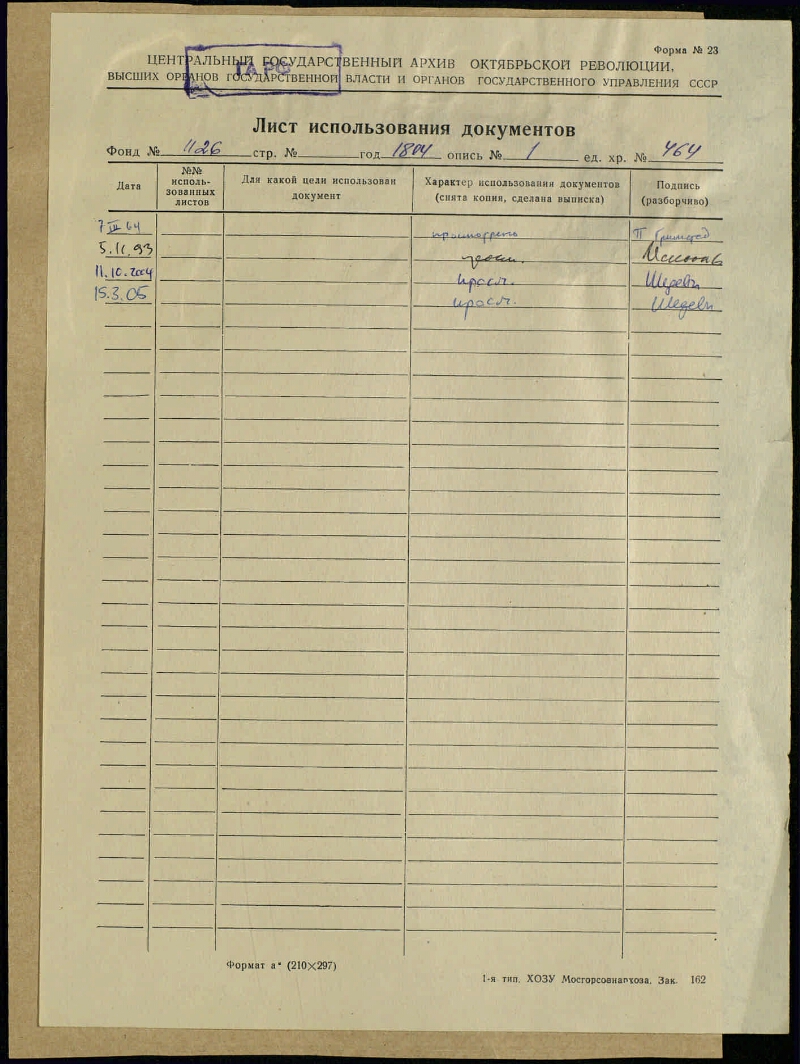 Форма № 23
ЦЕНТРАЛЬНЫЙ ГОСУДАРСТВЕННЫЙ АРХИВ ОКТЯБРЬСКОЙ РЕВОЛЮЦИИ,
ВЫСШИХ ОРГАНОВ ГОСУДАРСТВЕННОЙ ВЛАСТИ И ОРГАНОВ ГОСУДАРСТВЕННОГО УПРАВЛЕНИЯ СССР
ГАРФ
Лист использования документов
Фонд № 1126 стр. № год 1804 опись № 1 ед. хр. № 464
Дата
№№ исполь-
зованных
листов
Для какой цели использован
документ
Характер использования документов
(снята копия, сделана выписка)
Подпись
(разборчиво)
7 III 64
5.11.93
11.10.2004 просм.
15.3.05 просм.
Формат а⁴ (210×297)
1-я тип. ХОЗУ Мосгорсовнархоза. Зак. 162